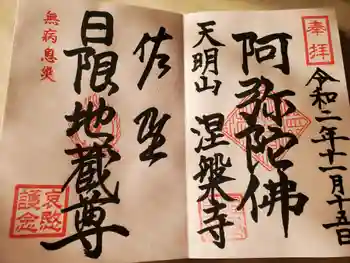 奉拝
令和二年十一月十五日
阿弥陀佛
天明山 涅槃寺
佐野
日限地蔵尊
無病息災
哀愍
護念